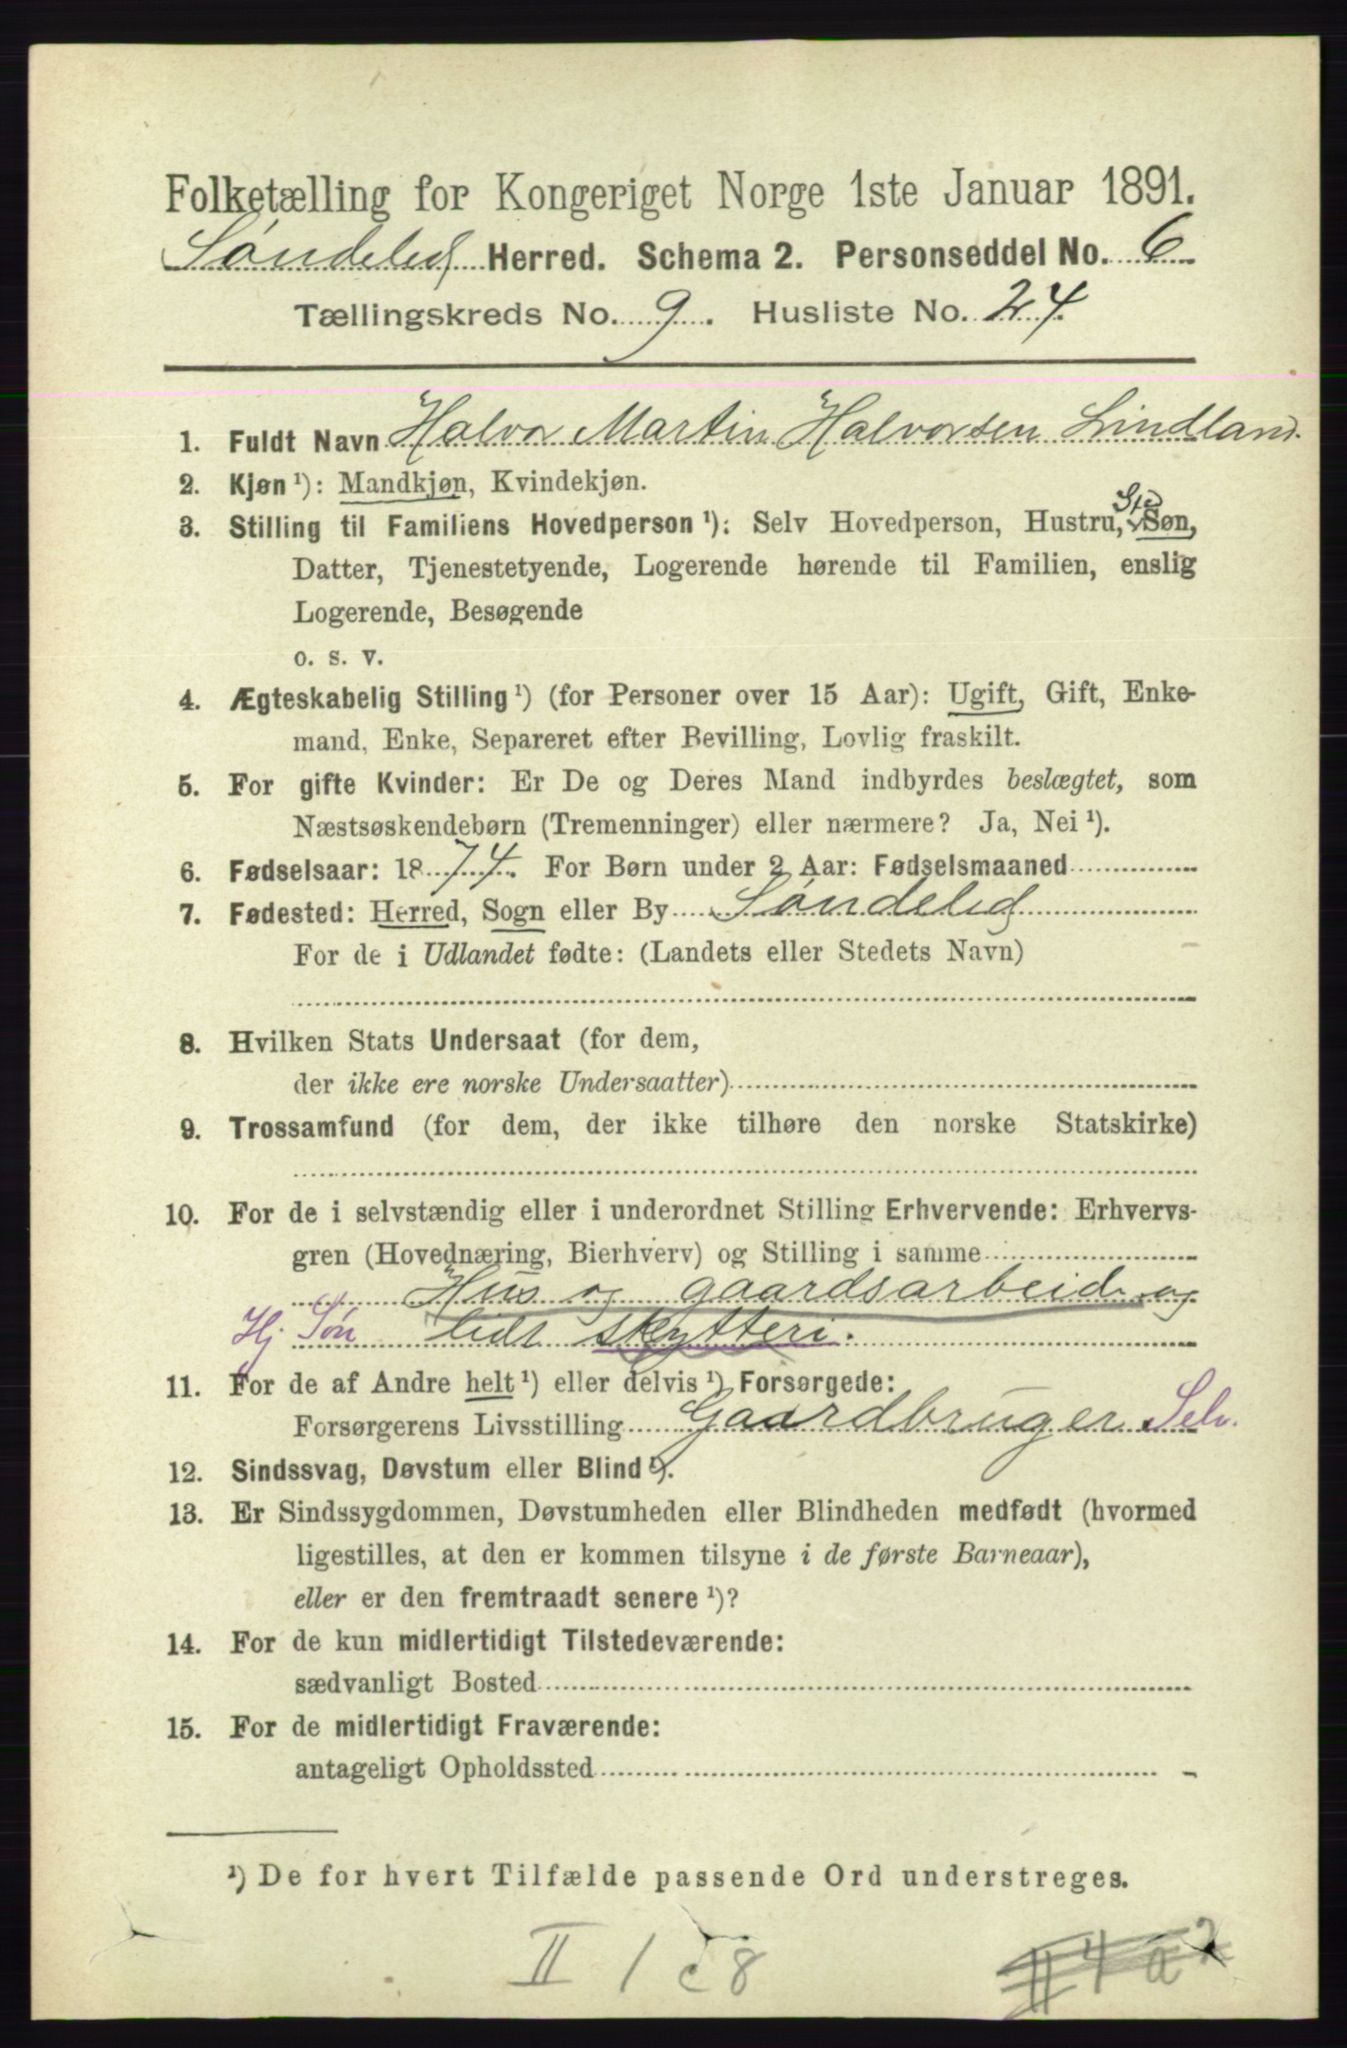 Folketælling for Kongeriget Norge 1ste Januar 1891.
Søndeled Herred. Schema 2. Personseddel No. 6
Tællingskreds No. 9. Husliste No. 24.
1. Fuldt Navn Halvor Martin Halvorsen Lindland.
2. Kjøn ¹): Mandkjøn, Kvindekjøn.
Sted
3. Stilling til Familiens Hovedperson ¹): Selv Hovedperson, Hustru, Søn,
Datter, Tjenestetyende, Logerende hørende til Familien, enslig
Logerende, Besøgende
o. s. v.
4. Ægteskabelig Stilling ¹) (for Personer over 15 Aar): Ugift, Gift, Enke-
mand, Enke, Separeret efter Bevilling, Lovlig fraskilt.
5. For gifte Kvinder: Er De og Deres Mand indbyrdes beslægtet, som
Næstsøskendebørn (Tremenninger) eller nærmere? Ja, Nei ¹).
6. Fødselsaar: 1874. For Børn under 2 Aar: Fødselsmaaned
7. Fødested: Herred, Sogn eller By Søndeled
For de i Udlandet fødte: (Landets eller Stedets Navn)
8. Hvilken Stats Undersaat (for dem,
der ikke ere norske Undersaatter)
9. Trossamfund (for dem, der ikke tilhøre den norske Statskirke)
10. For de i selvstændig eller i underordnet Stilling Erhvervende: Erhvervs-
gren (Hovednæring, Bierhverv) og Stilling i samme
Hus og gaardsarbeide og
Hj. Søn lidt skytteri.
11. For de af Andre helt ¹) eller delvis ¹) Forsørgede:
Forsørgerens Livsstilling Gaardbruger Selv.
12. Sindssvag, Døvstum eller Blind ¹).
13. Er Sindssygdommen, Døvstumheden eller Blindheden medfødt (hvormed
ligestilles, at den er kommen tilsyne i de første Barneaar),
eller er den fremtraadt senere ¹)?
14. For de kun midlertidigt Tilstedeværende:
sædvanligt Bosted
15. For de midlertidigt Fraværende:
antageligt Opholdssted
¹) De for hvert Tilfælde passende Ord understreges.
II 1 c 8 II 4 a 2